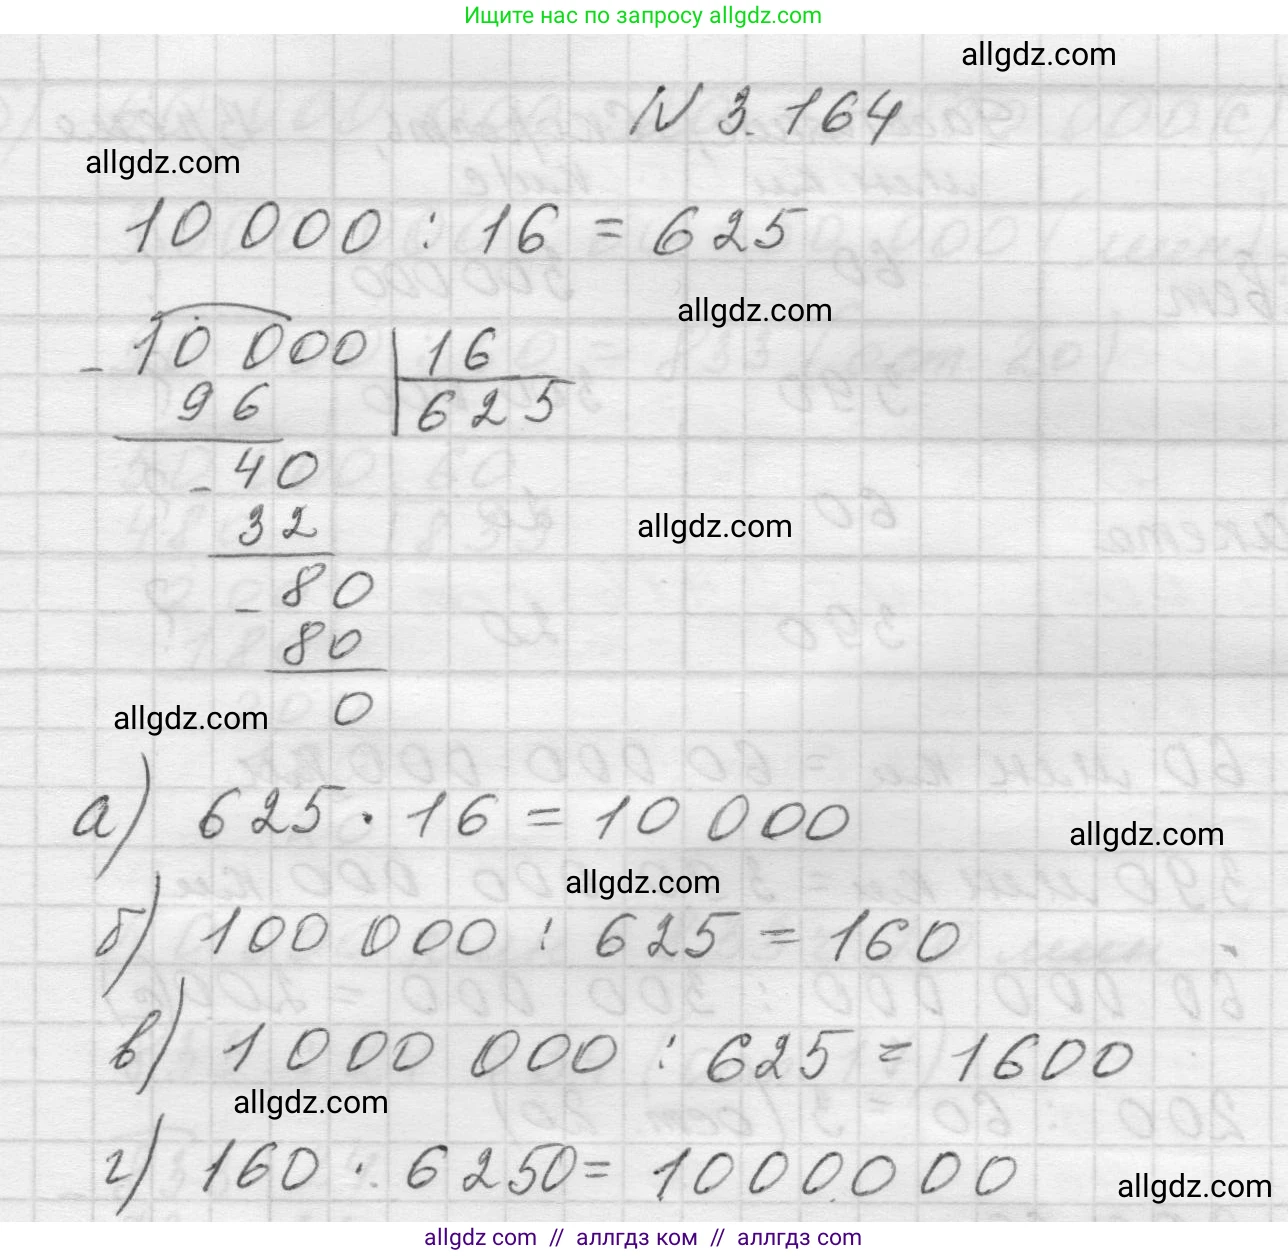 Ищите нас по запросу allgdz.com
allgdz.com
N 3.164
allgdz.com
10 000 : 16 = 625
allgdz.com
- 10 000 16
96 625
- 40
32
allgdz.com
- 80
80
allgdz.com
0
а) 625 · 16 = 10 000
allgdz.com
allgdz.com
б) 100 000 : 625 = 160
в) 1 000 000 : 625 = 1600
allgdz.com
г) 160 · 6250 = 1000000
allgdz.com
allgdz com // аллгдз ком // аллгдз com